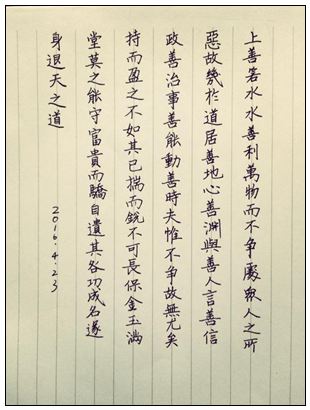 上善若水水善利萬物而不争處眾人之所
惡故幾於道居善地心善淵與善人言善信
政善治事善能動善時夫惟不争故無尤矣
持而盈之不如其已揣而銳不可長保金玉滿
堂莫之能守富貴而驕自遺其咎功成名遂
身退天之道
2016.4.23